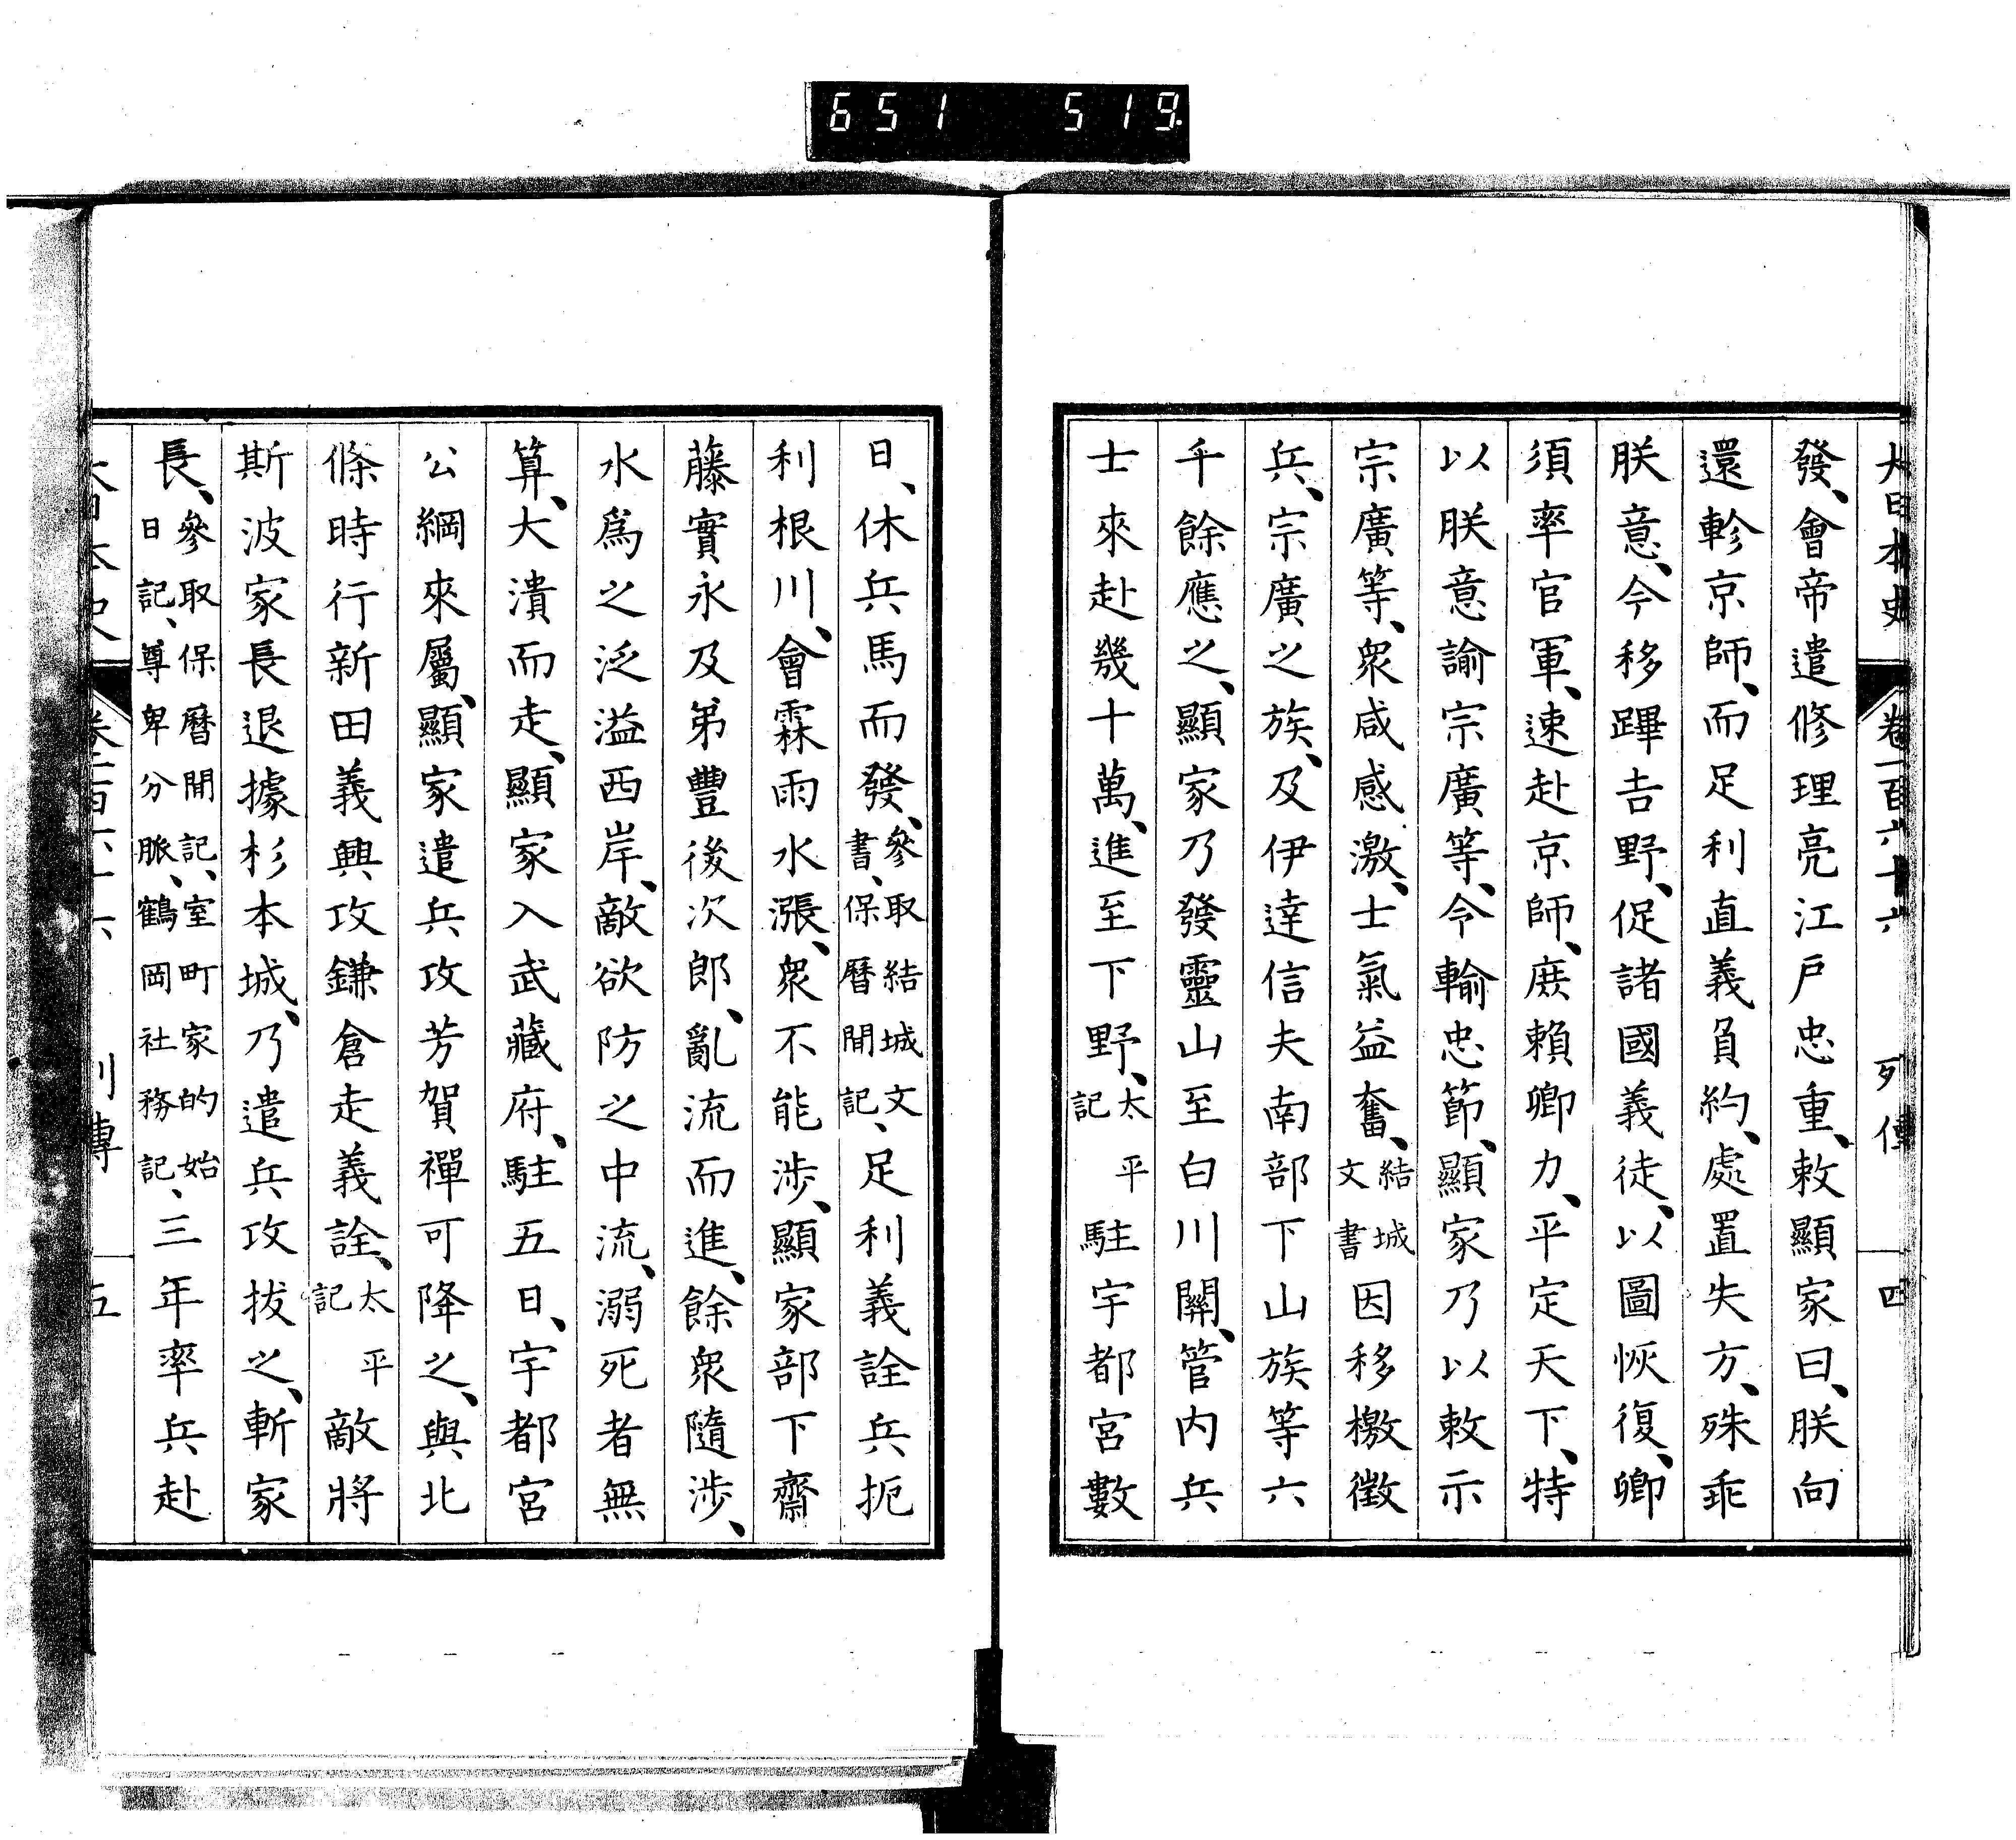 651 519
大日本史 卷一百六十六 列傳 四
發、會帝遣修理亮江戸忠重、敕顯家曰、朕向
還軫京師、而足利直義負約、處置失方、殊乖
朕意、今移蹕吉野、促諸國義徒、以圖恢復、卿
須率官軍、速赴京師、庶賴卿力、平定天下、特
以朕意諭宗廣等、令輸忠節、顯家乃以敕示
宗廣等、衆咸感激、士氣益奮、結城文書因移檄徵
兵、宗廣之族、及伊達信夫南部下山族等六
千餘應之、顯家乃發靈山至白川關、管内兵
士來赴幾十萬、進至下野、太平記駐宇都宮數
日、休兵馬而發、參取結城文書、保曆間記、足利義詮兵扼
利根川、會霖雨水漲、衆不能渉、顯家部下齋
藤實永及弟豐後次郎、亂流而進、餘衆隨渉、
水爲之泛溢西岸、敵欲防之中流、溺死者無
算、大潰而走、顯家入武藏府、駐五日、宇都宮
公綱來屬、顯家遣兵攻芳賀禪可降之、與北
條時行新田義興攻鎌倉走義詮、太平記敵將
斯波家長退據杉本城、乃遣兵攻拔之、斬家
長、參取保曆間記、室町家的始日記、尊卑分脈、鶴岡社務記、三年率兵赴
大日本史 卷一百六十六 列傳 五